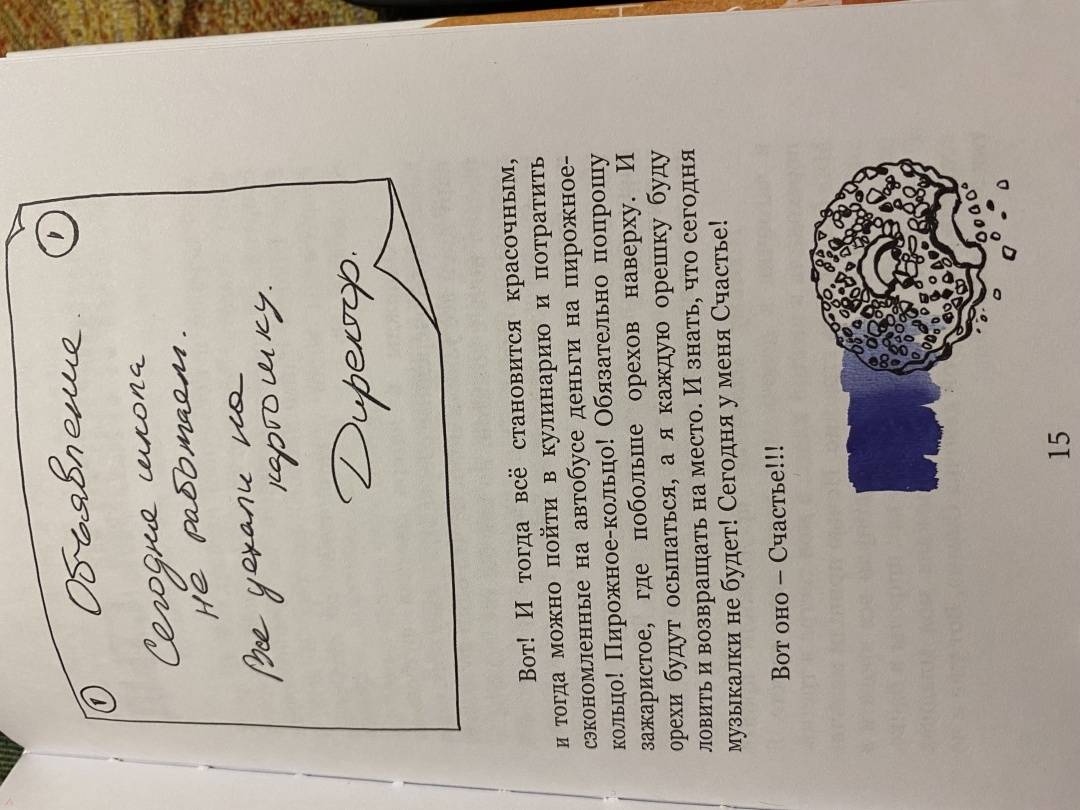 Объявление.
Сегодня школа
не работает.
Все уехали на
картошку.
Директор.
Вот! И тогда всё становится красочным,
и тогда можно пойти в кулинарию и потратить
сэкономленные на автобусе деньги на пирожное-
кольцо! Пирожное-кольцо! Обязательно попрошу
зажаристое, где побольше орехов наверху. И
орехи будут осыпаться, а я каждую орешку буду
ловить и возвращать на место. И знать, что сегодня
музыкалки не будет! Сегодня у меня Счастье!
Вот оно – Счастье!!!
15